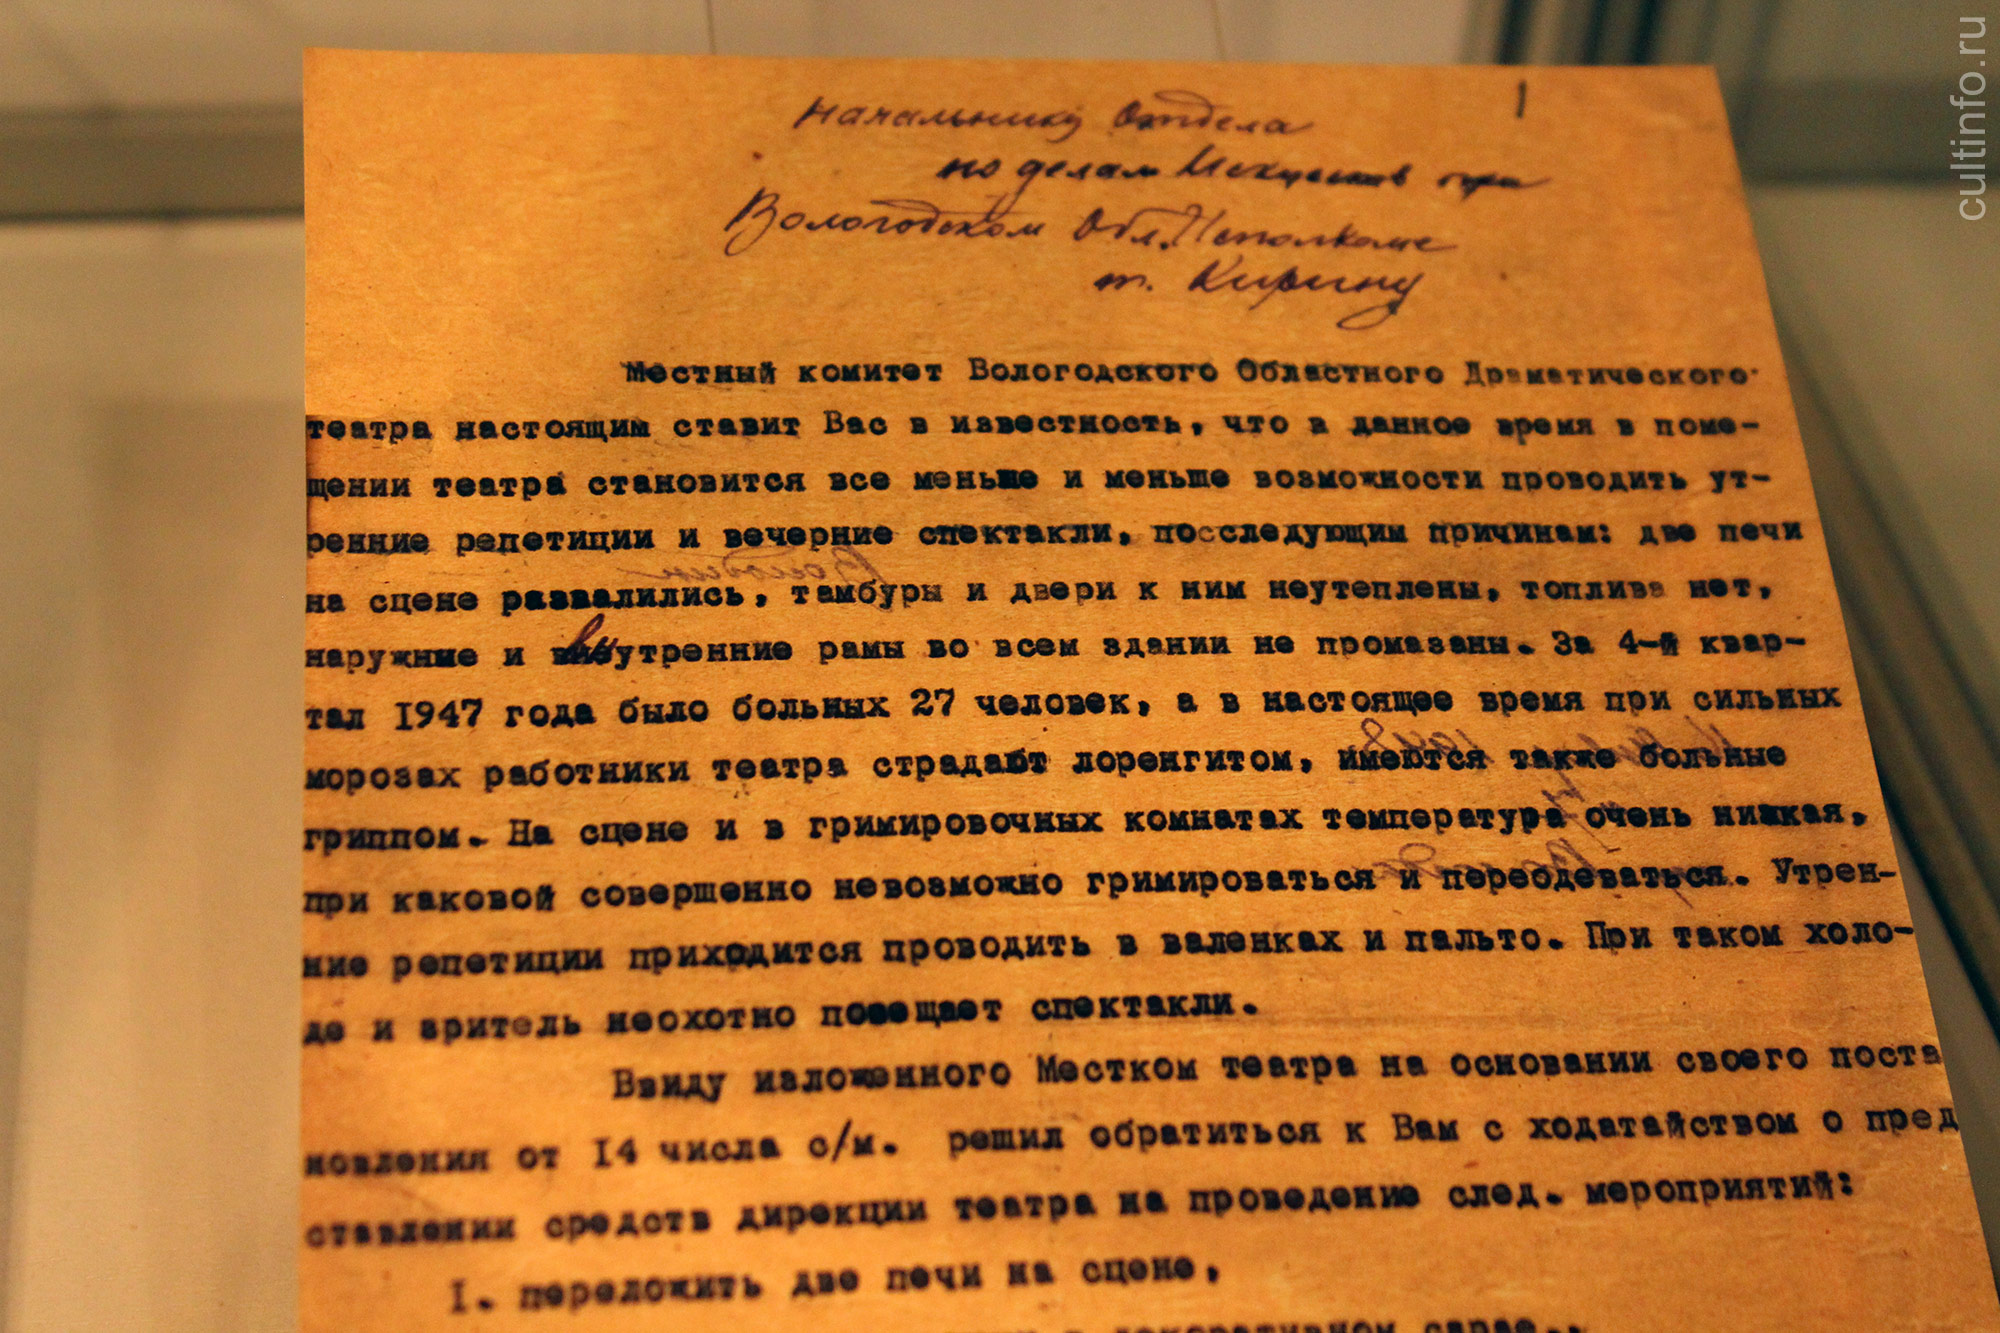 cultinfo.ru
1
Начальнику Отдела
по делам Искусств при
Вологодском Обл.Исполкоме
т. Кирину
Местный комитет Вологодского Областного Драматического
театра настоящим ставит Вас в известность, что в данное время в поме-
щении театра становится все меньше и меньше возможности проводить ут-
ренние репетиции и вечерние спектакли, последующим причинам: две печи
на сцене развалились, тамбуры и двери к ним неутеплены, топлива нет,
наружные и внутренние рамы во всем здании не промазаны. За 4-й квар-
тал 1947 года было больных 27 человек, а в настоящее время при сильных
морозах работники театра страдают лоренгитом, имеются также больные
гриппом. На сцене и в гримировочных комнатах температура очень низкая,
при каковой совершенно невозможно гримироваться и переодеваться. Утрен-
ние репетиции приходится проводить в валенках и пальто. При таком холо-
де и зритель неохотно посещает спектакли.
Ввиду изложенного Местком театра на основании своего поста
новления от 14 числа с/м. решил обратиться к Вам с ходатайством о пред
ставлении средств дирекции театра на проведение след. мероприятий:
I. переложить две печи на сцене,
декоративном сарае.